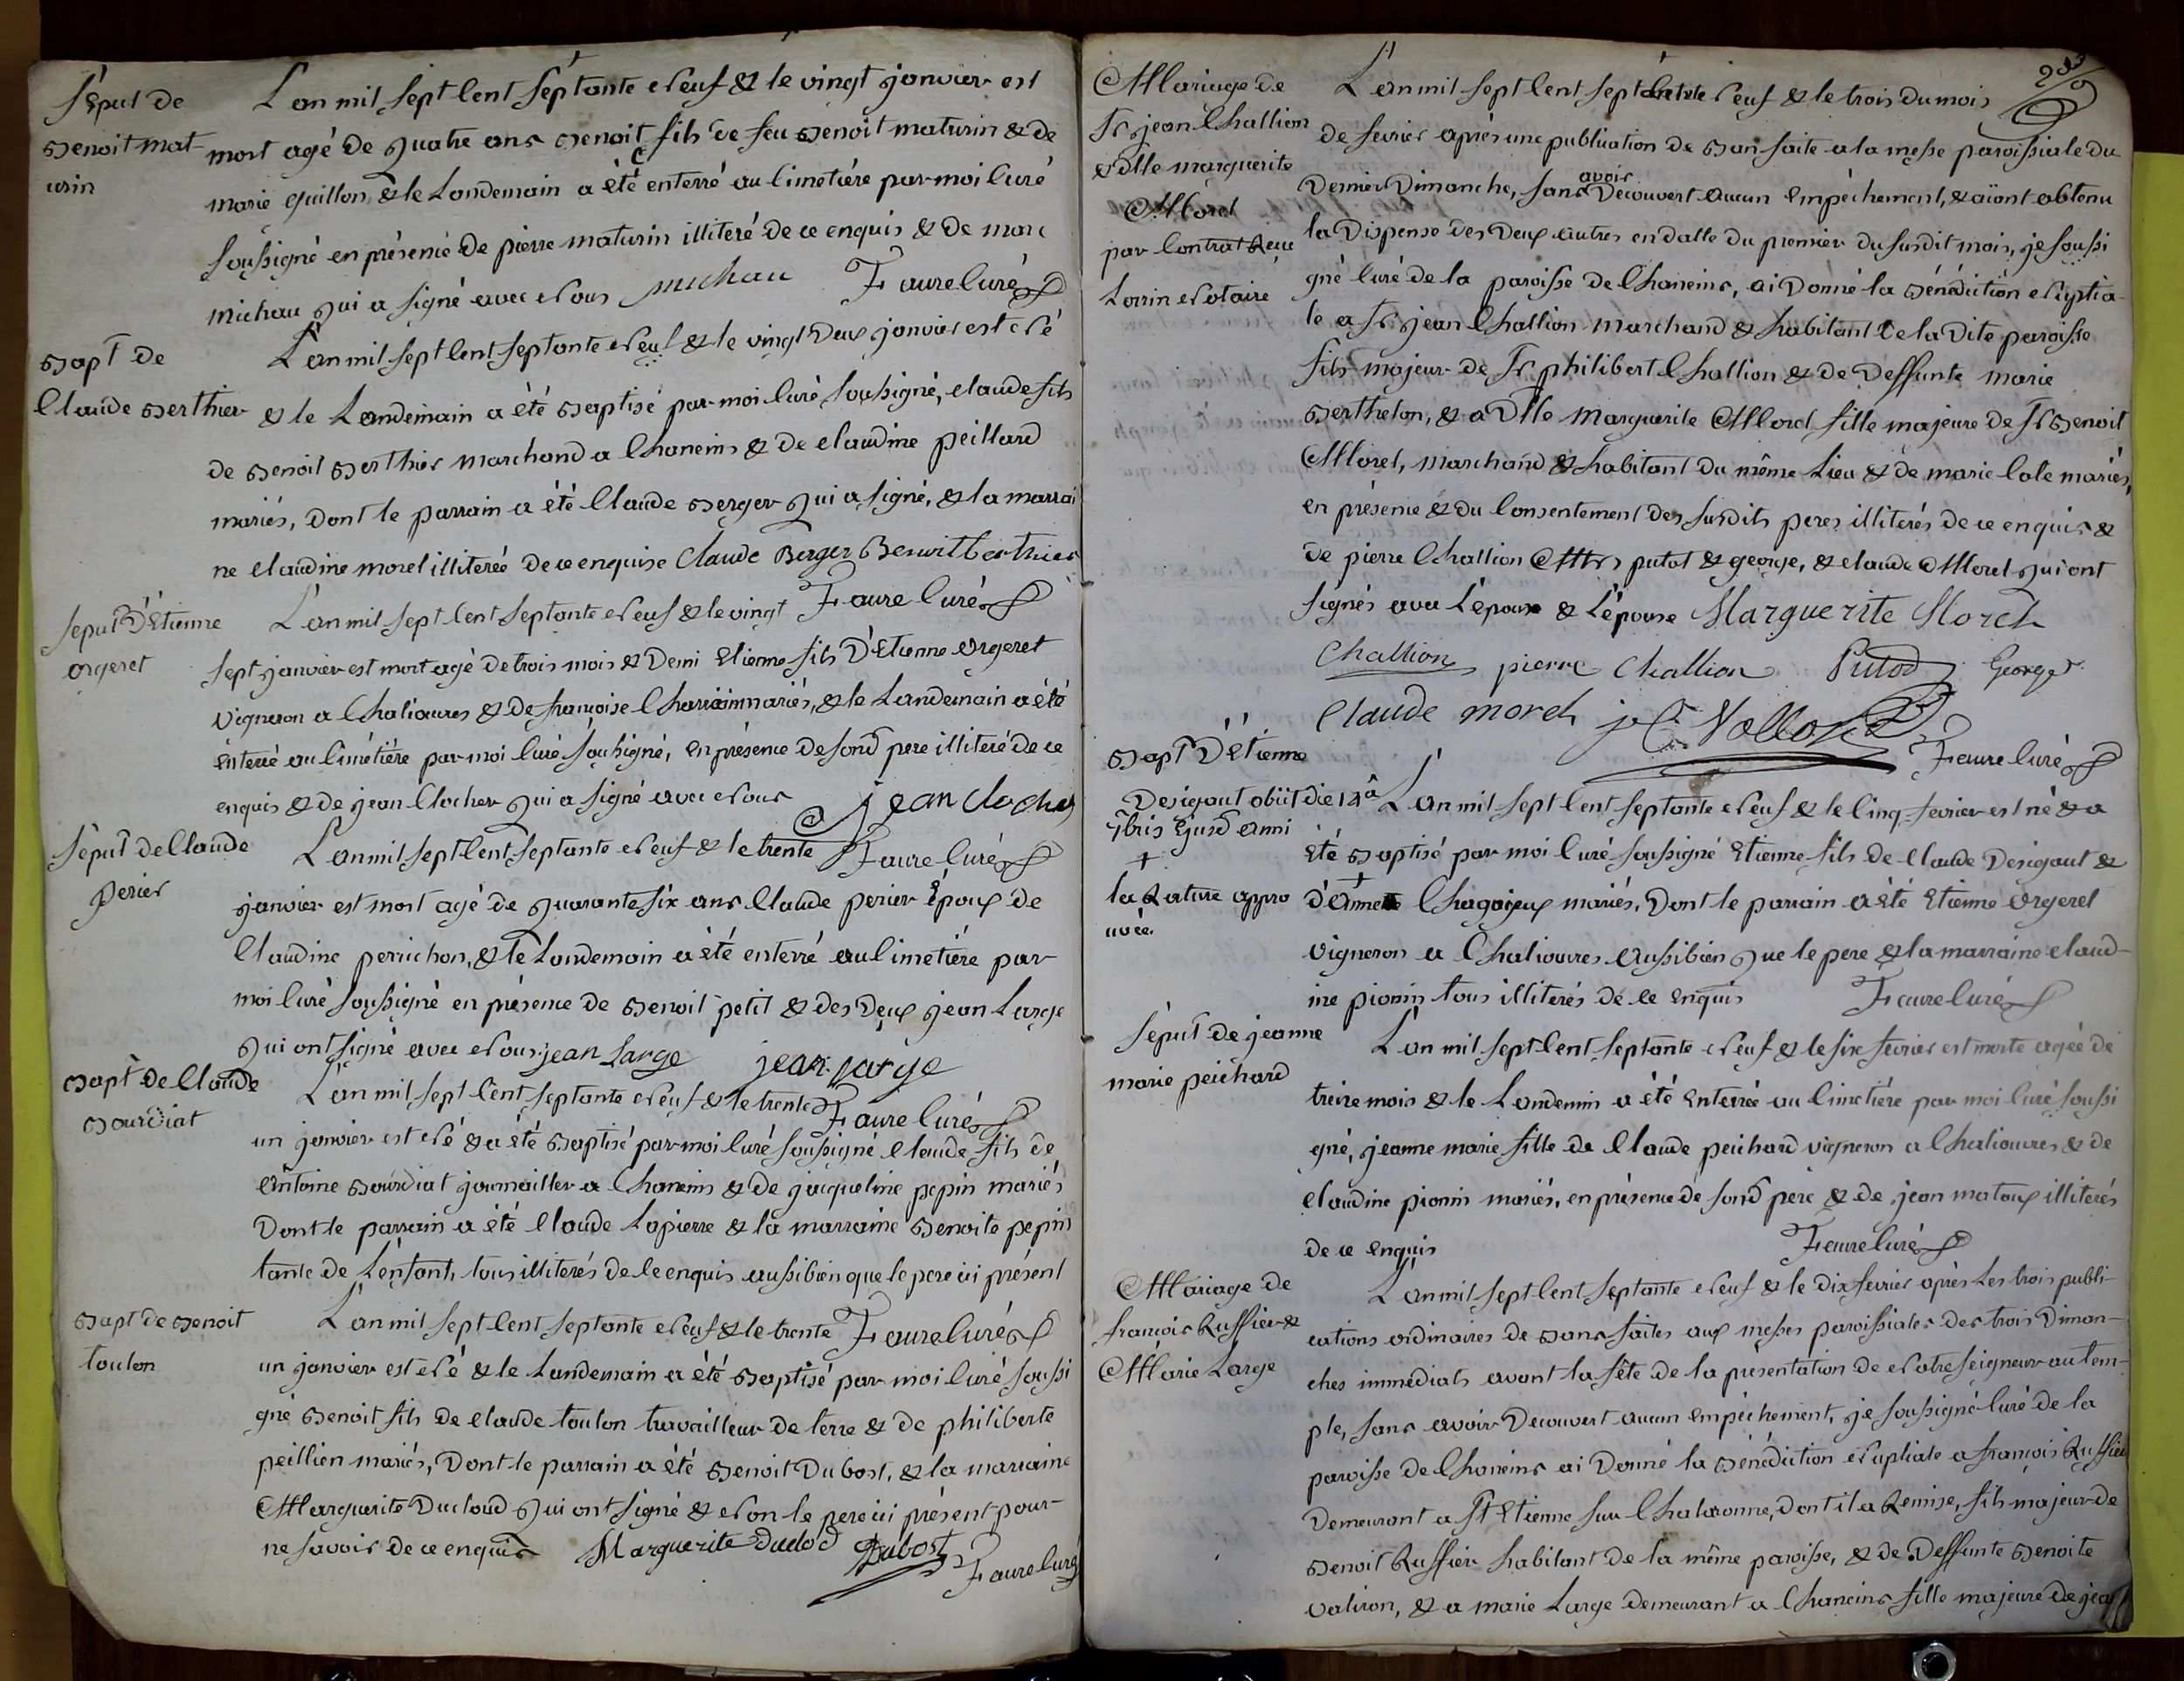 Sepul de
Benoit mat
urin
L'an mil sept Cent Septante Neuf & le vingt janvier est
mort agé de Quatre ans Benoit fils de feu Benoit maturin & de
marie guillon, & le Landemain a été enterré au Cimetiére par moi Curé
Soussigné en présence de pierre maturin illiteré de ce enquis & de marc
michau Qui a signé avec Nous michau Faure Curé
Bapt de
Claude Berthier
L'an mil sept Cent septante Neuf & le vingt Deux janvier est Né
& le Landemain a été Baptisé par moi Curé soussigné, Claude fils
de Benoit Berthier marchand a Chaneins & de Claudine peillard
mariés, Dont le parrain a été Claude Berger Qui a signé, & la marrai
ne Claudine morel illiterée de ce enquise Claude Berger Benoit berthier
Sepul D'Etienne
orgeret
L'an mil sept Cent septante Neuf & le vingt Faure Curé
sept janvier est mort agé de trois mois & Demi Etienne fils D'Etienne Orgeret
Vigneron a Chaliouvres & de françoise mariés, & le Landemain a été
enterré au Cimétiére par moi Curé soussigné, en présence de sond pere illiteré de ce
enquis & de jean Clocher Qui a signé avec Nous jean clocher
Sepul de Claude
perier
L'an mil sept Cent septante Neuf & le trente Faure Curé
janvier est mort agé de Quarante six ans Claude perier Époux de
Claudine perrichon, & le Landemain a été enterré au Cimetiére par
moi Curé soussigné en présence de Benoit petit & des Deux jean Large
Qui ont signé avec Nous. jean Large jean large
Bapt de Claude
Bourdiat
L'an mil sept Cent septante Neuf & le trente Faure Curé
un janvier est Né & a été Baptisé par moi Curé soussigné Claude fils de
Antoine Bourdiat journaillier a Chaneins & de jacqueline pepin mariés
Dont le parrain a été Claude Lapierre & la marraine Benoite pepin
tante de L'enfant, tous illiterés de ce enquis aussi bien que le pere ici présent
Bapt de Benoit
toulon
L'an mil sept Cent septante Neuf & le trente Faure Curé
un janvier est Né & le Landemain a été Baptisé par moi Curé soussi
gné Benoit fils de Claude toulon travailleur de terre & de philiberte
peillien mariés, Dont le parrain a été Benoit Dubost, & la marraine
Marguerite Ducloud Qui ont signé & Non le pere ici présent pour
ne savoir de ce enquis Marguerite duclod Dubost
Faure Curé
Mariage de
Sr jean Challion
& Dlle marguerite
Morel
par Contrat Reçu
Lorrin Notaire
L'an mil sept Cent septante Neuf & le trois du mois
de fevrier aprés une publication de Ban faite a la messe paroissiale du
Dernier Dimanche, sans avoir Decouvert aucun empêchement, & aïant obtenu
la Dispense des Deux autres en datte du premier du susdit mois, je soussi
gné Curé de la paroisse de Chaneins, ai Donné la Bénédiction Nuptia-
le a Sr jean Challion marchand & habitant de la Dite paroisse
fils majeur de Sr philibert Challion & de Deffunte marie
Berthelon, & a Dlle marguerite Morel fille majeure de Sr Benoit
Morel, marchand & habitant du même Lieu & de marie Cote mariés,
en présence & du Consentement des susdits peres illiterés de ce enquis &
de pierre Challion Mtrs putot & george, & Claude Morel Qui ont
signés avec L'epoux & L'épouse Marguerite Morel
Challion pierre Challion Putod George
Claude morel
Faure Curé
Bapt D'Etienne
Desigaut obiit die 14a
7bris Ejusd anni
+
la Rature appro
uvée.
L'an mil sept Cent septante Neuf & le Cinq fevrier est né & a
été Baptisé par moi Curé soussigné Etienne fils de Claude Desigaut &
d'Anne Chagoyeux mariés, Dont le parrain a été Etienne Orgeret
vigneron a Chaliouvres aussi bien Que le pere & la marraine Claud-
ine pionin tous illiterés de ce enquis Faure Curé
Sépul de jeanne
marie peichard
L'an mil sept Cent septante Neuf & le six fevrier est morte agée de
treize mois & le Landemin a été enterrée au Cimetiére par moi Curé soussi
gné, jeanne marie fille de Claude peichard vigneron a Chaliouvres & de
Claudine pionin mariés, en présence de sond pere & de jean matoux illiterés
de ce enquis Faure Curé
Mariage de
françois Ruffier &
Marie Large
L'an mil sept Cent septante Neuf & le Dix fevrier aprés Les trois publi-
cations ordinaires de Bans faites aux messes paroissiales des trois Diman-
ches immédiats avant la fête de la présentation de Notre seigneur au tem-
ple, sans avoir Decouvert aucun empéchement, je soussigné Curé de la
paroisse de Chaneins ai Donné la Bénédiction Nuptiale a françois Ruffier
Demeurant a St Etienne sur Chalaronne, Dont il a Remise, fils majeur de
Benoit Ruffier habitant de la même paroisse, & de Deffunte Benoite
valiron, & a marie Large demeurant a Chaneins fille majeure de jean